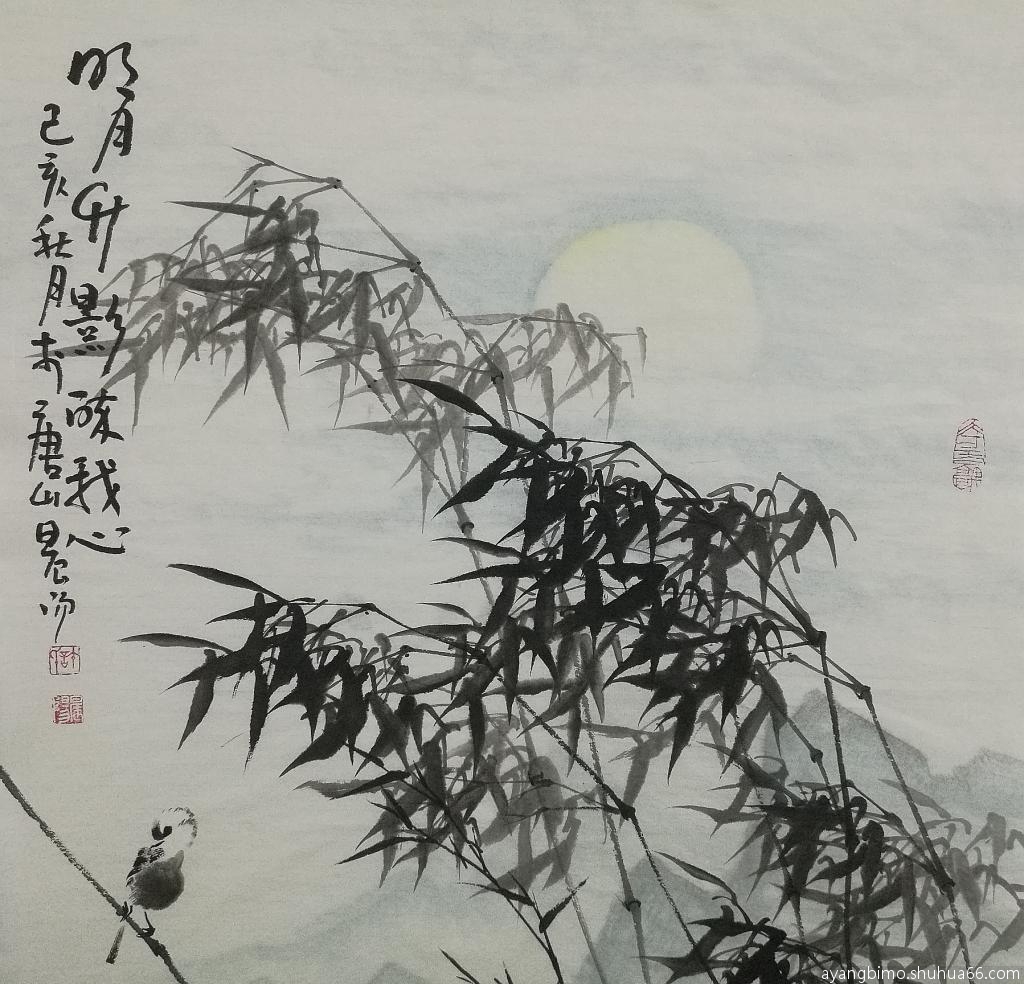 明月竹影我心
己亥秋月於唐山晨阳
ayangbimo.shuhua66.com